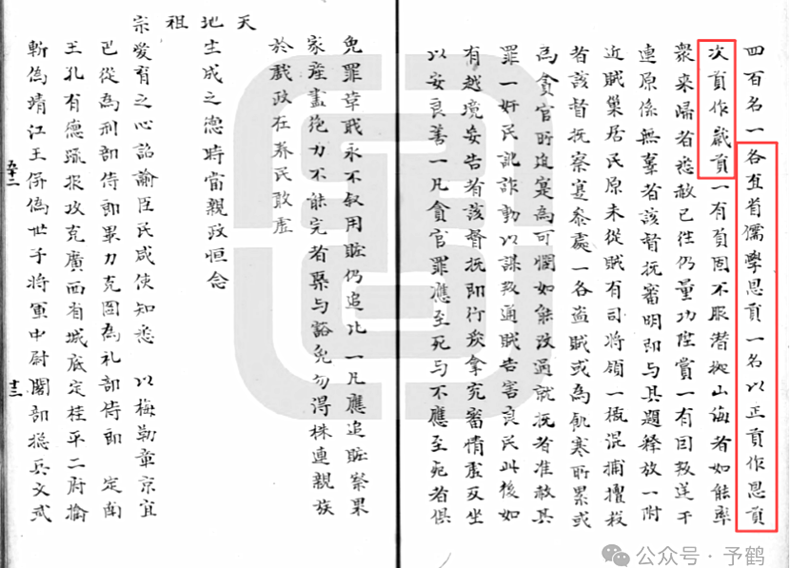 四百名一各直省儒學恩貢一名以正貢作恩貢
次貢作歲貢一有負固不服潛據山海者如能率
衆来歸者悉赦已徃仍量功陞賞一有因叛逆干
連原係無辜者該督抚審明即与具題釋放一附
近賊巢居民原未從賊有司将領一槩混捕擅殺
者該督抚察寔参處一各盗賊或為飢寒所累或
為貪官所迫寔為可憫如能改過就抚者准赦其
罪一奸民訛詐動以謀叛通賊告害良民此後如
有越境妄告者該督抚即行嚴拿究審情虚反坐
以安良善一凡貪官罪應至死与不應至死者俱
免罪革職永不叙用賍仍追比一凡應追賍察果
家産盡絶力不能完者槩与豁免勿得株連親族
於戲政在养民敢虚
天
地生成之德時當親政恒念
祖
宗愛育之心詔諭臣民咸使知悉 以梅勒章京宜
巴從為刑部侍郎畢力克圖為礼部侍郎 定南
王孔有德疏报攻克廣西省城底定桂平二府擒
斬偽靖江王併偽世子将軍中尉閣部捴兵文武
五十二
十三
公众号·予鹤